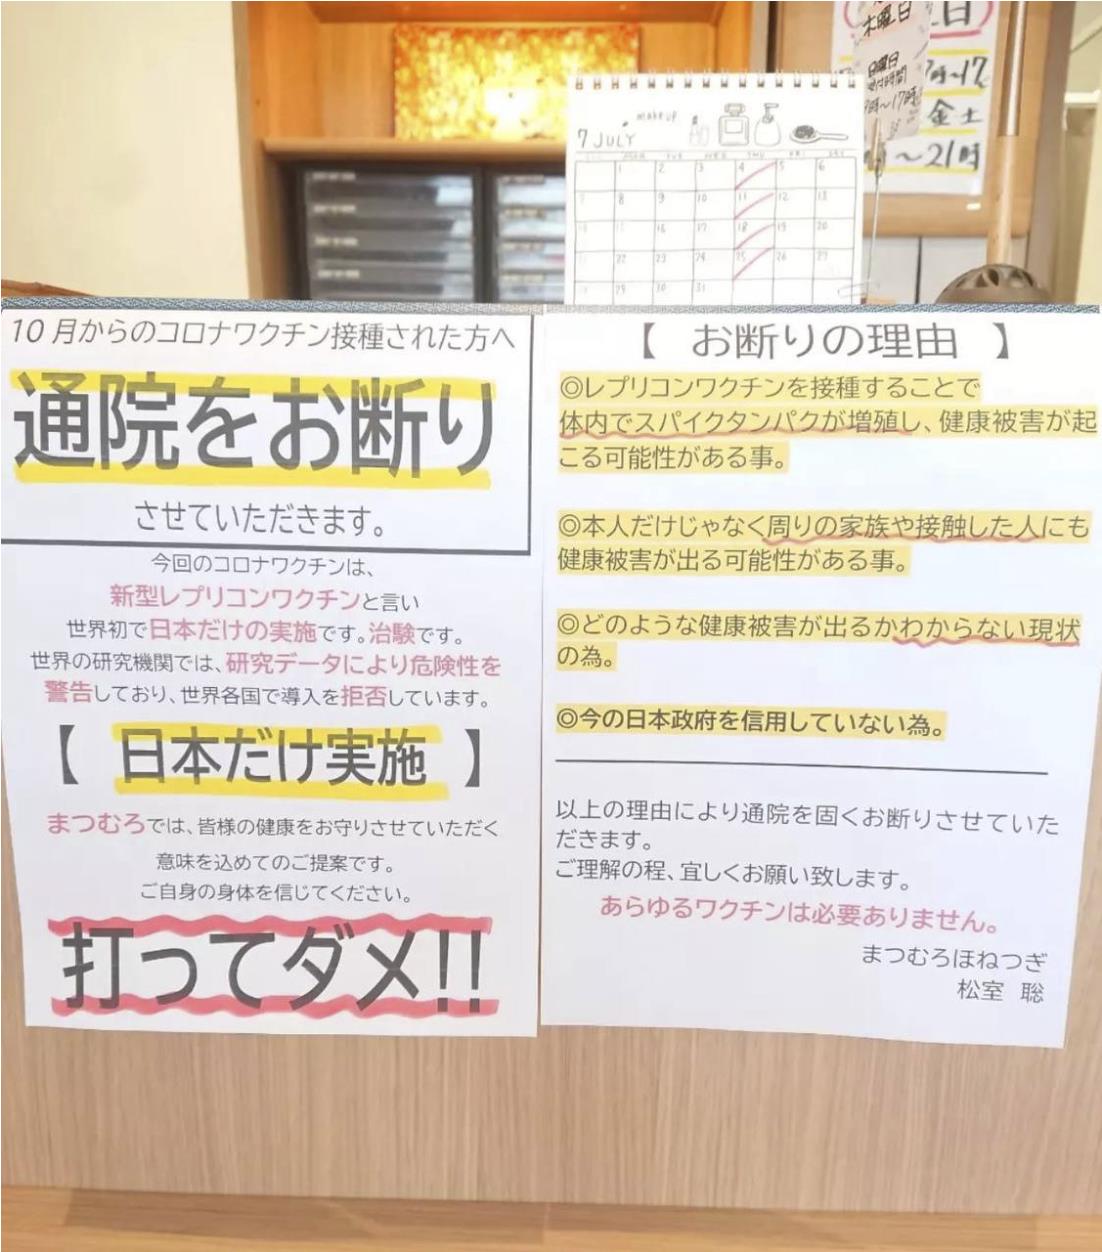 木曜日
日
日曜日
受付時間
9時~17時
7時~17
金土
~21時
makeup
7 JULY
MON TUE WED THU FRI SAT
1 2 3 4 5 6
7 8 9 10 11 12 13
14 15 16 17 18 19 20
21 22 23 24 25 26 27
28 29 30 31
10月からのコロナワクチン接種された方へ
通院をお断り
させていただきます。
今回のコロナワクチンは、
新型レプリコンワクチンと言い
世界初で日本だけの実施です。治験です。
世界の研究機関では、研究データにより危険性を
警告しており、世界各国で導入を拒否しています。
【 日本だけ実施 】
まつむろでは、皆様の健康をお守りさせていただく
意味を込めてのご提案です。
ご自身の身体を信じてください。
打ってダメ!!
【 お断りの理由 】
◎レプリコンワクチンを接種することで
体内でスパイクタンパクが増殖し、健康被害が起
こる可能性がある事。
◎本人だけじゃなく周りの家族や接触した人にも
健康被害が出る可能性がある事。
◎どのような健康被害が出るかわからない現状
の為。
◎今の日本政府を信用していない為。
以上の理由により通院を固くお断りさせていた
だきます。
ご理解の程、宜しくお願い致します。
あらゆるワクチンは必要ありません。
まつむろほねつぎ
松室 聡